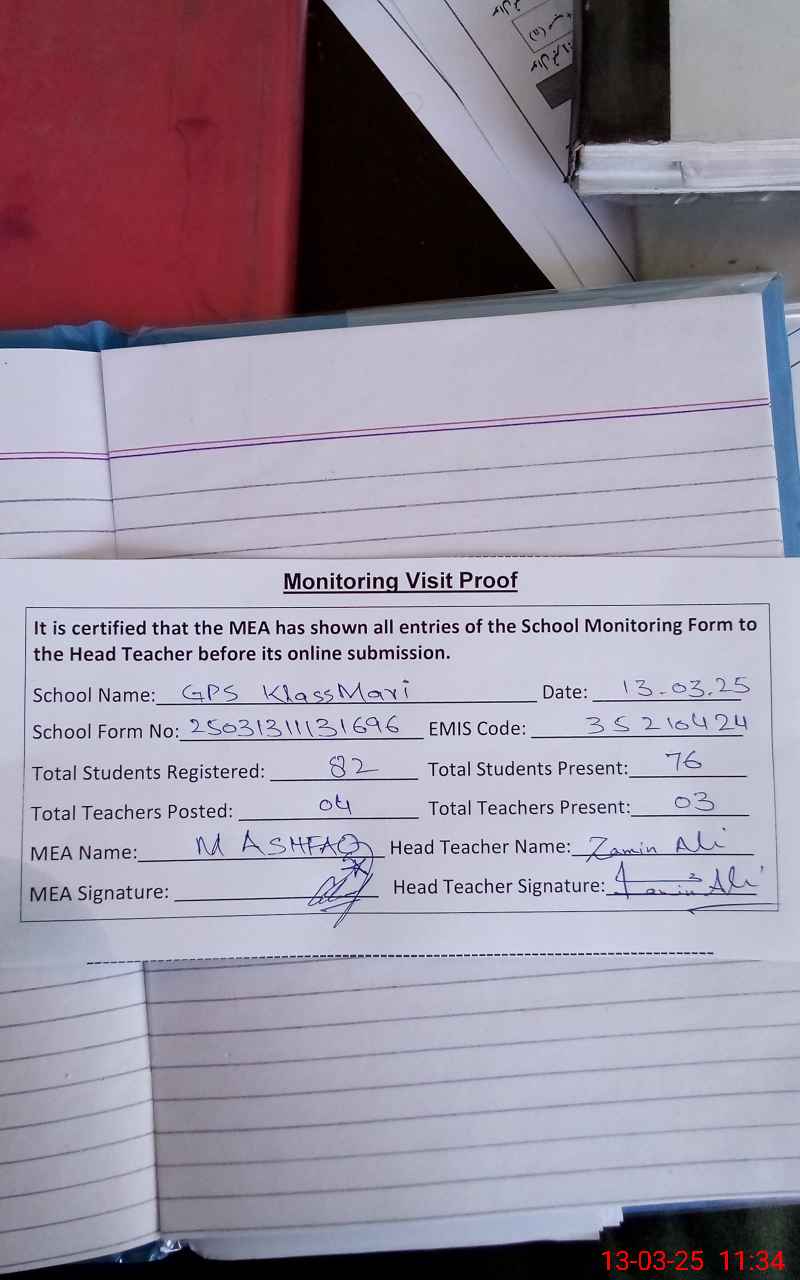 Monitoring Visit Proof
It is certified that the MEA has shown all entries of the School Monitoring Form to
the Head Teacher before its online submission.
School Name: GPS KlassMari Date: 13-03.25
School Form No: 25031311131696 EMIS Code: 35210424
Total Students Registered: 82 Total Students Present: 76
Total Teachers Posted: 04 Total Teachers Present: 03
MEA Name: M ASHFAQ Head Teacher Name: Zamin Ali
MEA Signature: Head Teacher Signature: Zamin Ali
13-03-25 11:34